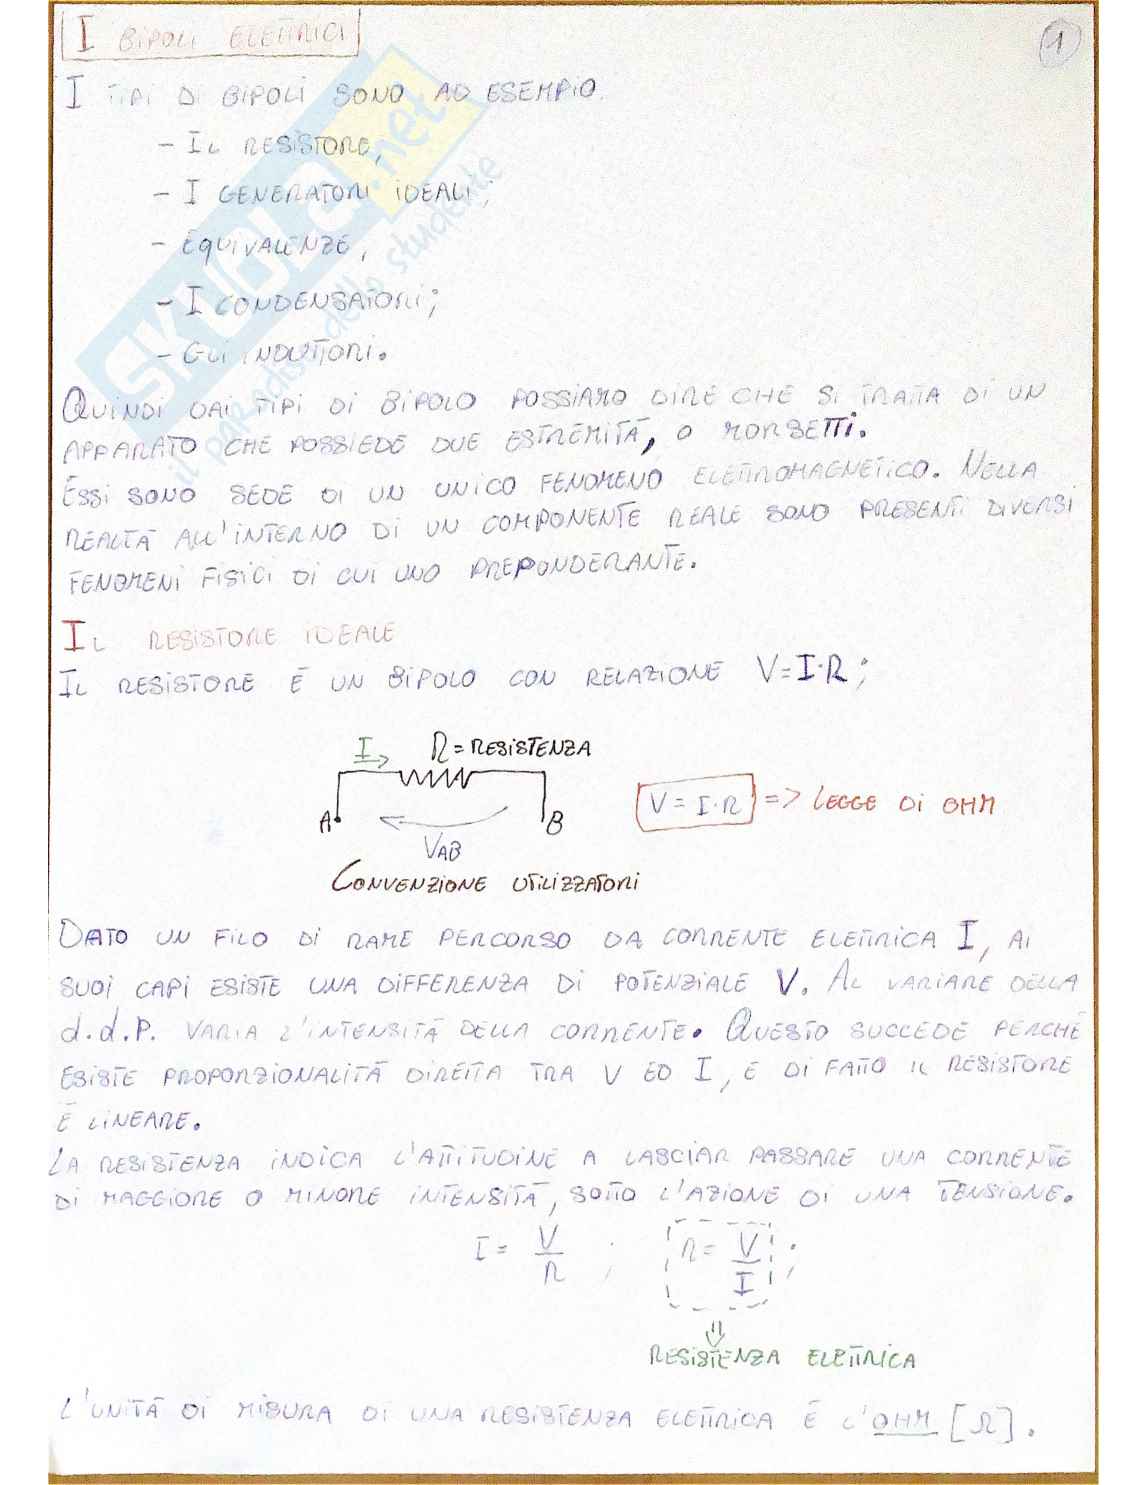 I BIPOLI ELETTRICI
1
I TIPI DI BIPOLI SONO AD ESEMPIO.
- IL RESISTORE,
- I GENERATORI IDEALI;
- EQUIVALENZE,
- I CONDENSATORI;
- GLI INDUTTORI.
SKUOLA.net
il paradiso dello studente
QUINDI DAI TIPI DI BIPOLO POSSIAMO DIRE CHE SI TRATTA DI UN
APPARATO CHE POSSIEDE DUE ESTREMITÀ, O MORSETTI.
ESSI SONO SEDE DI UN UNICO FENOMENO ELETTROMAGNETICO. NELLA
REALTÀ ALL'INTERNO DI UN COMPONENTE REALE SONO PRESENTI DIVERSI
FENOMENI FISICI DI CUI UNO PREPONDERANTE.
IL RESISTORE IDEALE
IL RESISTORE È UN BIPOLO CON RELAZIONE V=I·R;
I R=RESISTENZA
A B
VAB
V = I·R => LEGGE DI OHM
CONVENZIONE UTILIZZATORI
DATO UN FILO DI RAME PERCORSO DA CORRENTE ELETTRICA I, AI
SUOI CAPI ESISTE UNA DIFFERENZA DI POTENZIALE V. AL VARIARE DELLA
d.d.P. VARIA L'INTENSITÀ DELLA CORRENTE. QUESTO SUCCEDE PERCHÉ
ESISTE PROPORZIONALITÀ DIRETTA TRA V ED I, E DI FATTO IL RESISTORE
È LINEARE.
LA RESISTENZA INDICA L'ATTITUDINE A LASCIAR PASSARE UNA CORRENTE
DI MAGGIORE O MINORE INTENSITÀ, SOTTO L'AZIONE DI UNA TENSIONE.
I = V/R ; R = V/I ;
RESISTENZA ELETTRICA
L'UNITÀ DI MISURA DI UNA RESISTENZA ELETTRICA È L'OHM [Ω].